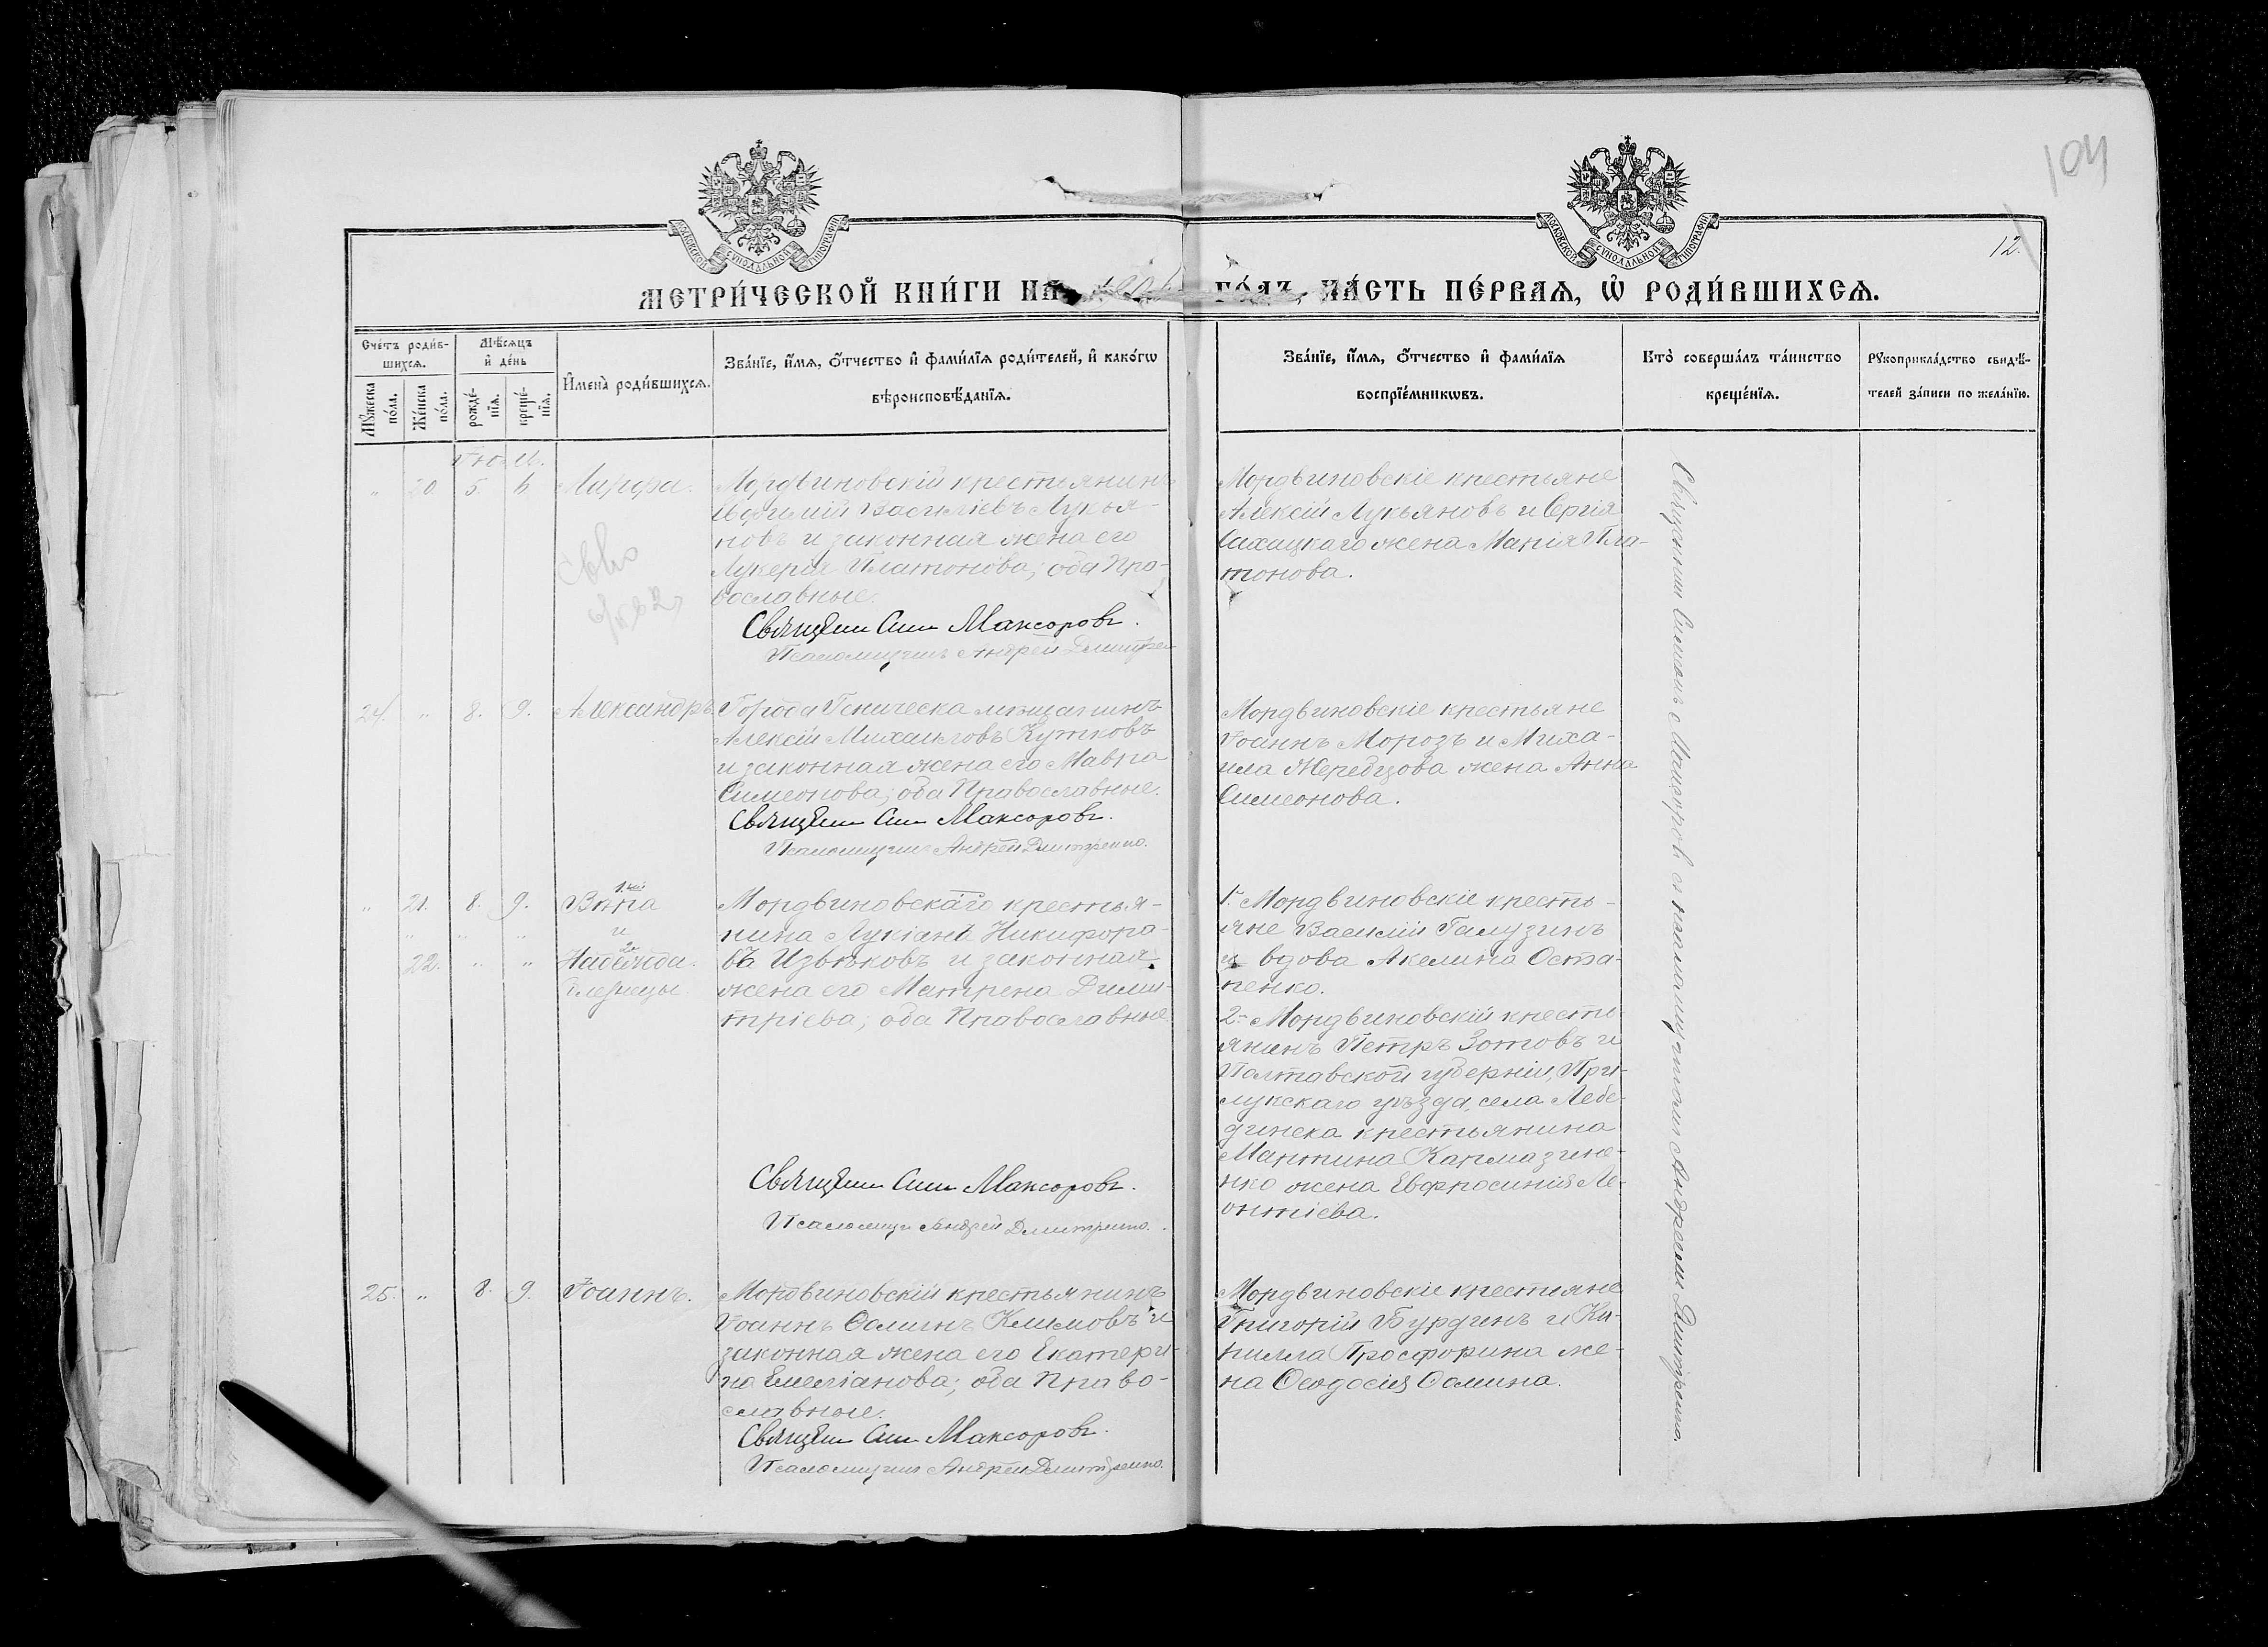 104
12.
МОСКОВСКОЙ СѴНОДАЛЬНОЙ ТИПОГРАФІИ
МОСКОВСКОЙ СѴНОДАЛЬНОЙ ТИПОГРАФІИ
МЕТРИ́ЧЕСКОЙ КНИ́ГИ НА ГО́ДЪ, ЧА́СТЬ ПЕ́РВАѦ, Ѡ҆ РОДИ́ВШИХСѦ.
Сче́тъ роди́в-
шихсѧ.
Мꙋ́жеска по́ла.
Же́нска по́ла.
Мѣ́сѧцъ и҆ де́нь
рожде́-
нїѧ.
креще́-
нїѧ.
И҆мена̀ роди́вшихсѧ.
Зва́нїе, и҆́мѧ, ѻ҆́тчество и҆ фами́лїѧ роди́телей, и҆ како́гѡ
вѣроисповѣ́данїѧ.
Зва́нїе, и҆́мѧ, ѻ҆́тчество и҆ фами́лїѧ
воспрїе́мникѡвъ.
Кто̀ соверша́лъ та́инство
креще́нїѧ.
Рꙋкоприкла́дство свидѣ́-
телей за́писи по жела́нїю.
" 20. 5. 6 Марфа.
Мордвиновскій крестьянинъ
Васильевъ Лукья-
новъ и законная жена его
Лукерія Платонова; оба Пра-
вославные.
Священ. Сим. Максоровъ.
Псаломщикъ Андрей Дмитрен
Мордвиновскіе крестьяне
Алексій Лукьяновъ и Сергія
Сахацкаго жена Марія Пла-
тонова.
24. " 8. 9. Александръ
Города Геническа мѣщанинъ
Алексій Михаиловъ Кутковъ
и законная жена его Мавра
Симеонова; оба Православные.
Священ. Сим. Максоровъ.
Псаломщикъ Андрей Дмитренко.
Мордвиновскіе крестьяне
Іоаннъ Морозъ и Миха-
ила Жеребцова жена Анна
Симеонова.
" 21. 8. 9. Вѣра
и
22. " " Надежда.
близнецы.
Мордвиновскаго крестья-
нина Лукіана Никифоро-
ва Извѣковъ и законная
жена его Матрена Дими-
тріева; оба Православные
Священ. Сим. Максоровъ.
Псаломщ. Андрей Дмитренко.
1. Мордвиновскіе кресть-
яне Василій Галузинъ
и вдова Акелина Оста-
пенко.
2. Мордвиновскій кресть-
янинъ Петръ Зотовъ и
Полтавской губерніи, При-
лукскаго уѣзда, села Лебе-
динска крестьянина
Мартина Кармазине-
нко жена Евфросинія Ле-
онтіева.
25. " 8. 9. Іоаннъ.
Мордвиновскій крестьянинъ
Іоаннъ Ѳоминъ Климовъ и
законная жена его Екатери-
на Емеліанова; оба Право-
славные.
Священ. Сим. Максоровъ.
Псаломщикъ Андрей Дмитренко.
Мордвиновскіе крестьяне
Григорій Бурдинъ и Ки-
рилла Просфорина же-
на Ѳеодосія Ѳомина.
Священникъ Симеонъ Максоровъ съ псаломщикомъ Андреемъ Дмитренко.